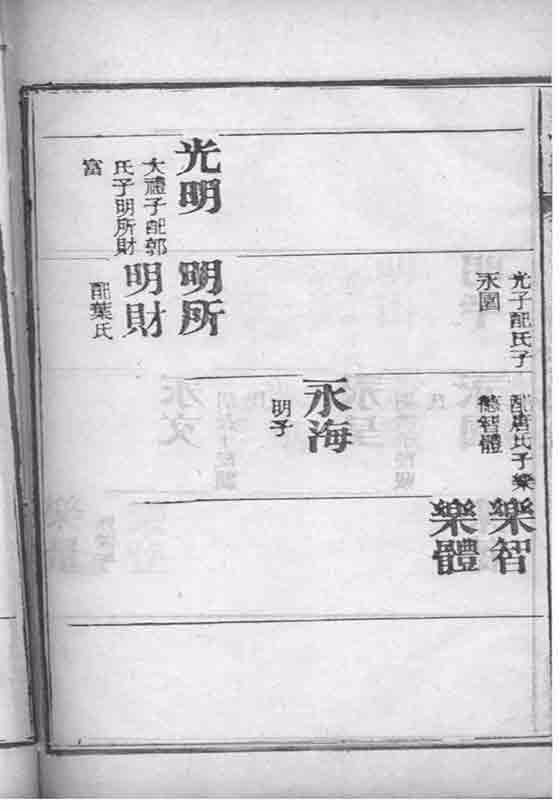 光明
大禮子配郭
氏子明所財
富
光子配氏子
永園
明所
明財
配葉氏
配唐氏子樂
德智體
永海
明子
樂智
樂體